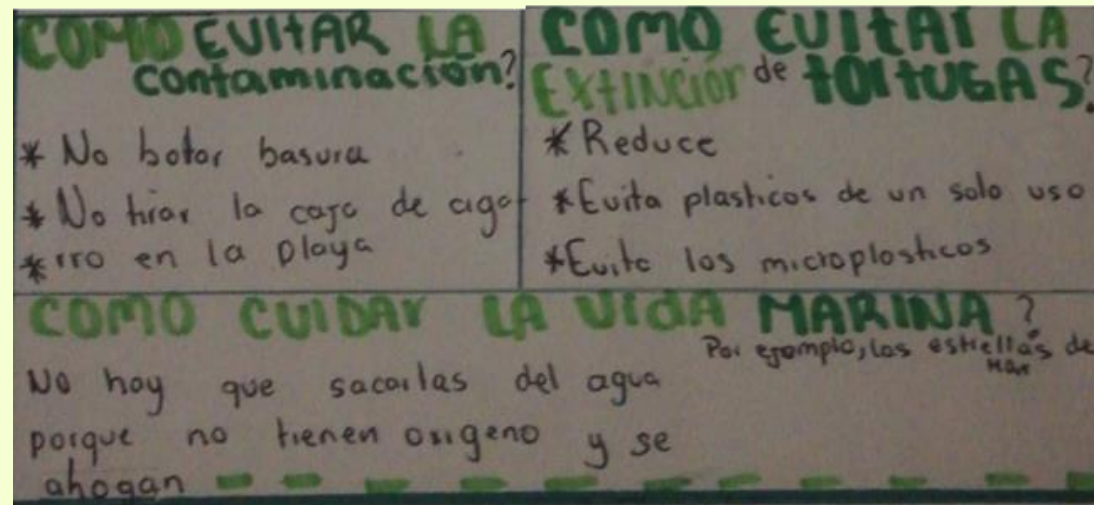 COMO EVITAR LA
contaminación?
* No botar basura
* No tirar la caja de cigar
* rro en la playa
COMO EVITAR LA
EXTINCIÓN de tORTUGAS?
* Reduce
* Evita plasticos de un solo uso
* Evita los microplasticos
COMO CUIDAR LA VIDA MARINA?
Por ejemplo, las estrellas de
Mar
No hay que sacarlas del agua
porque no tienen oxigeno y se
ahogan